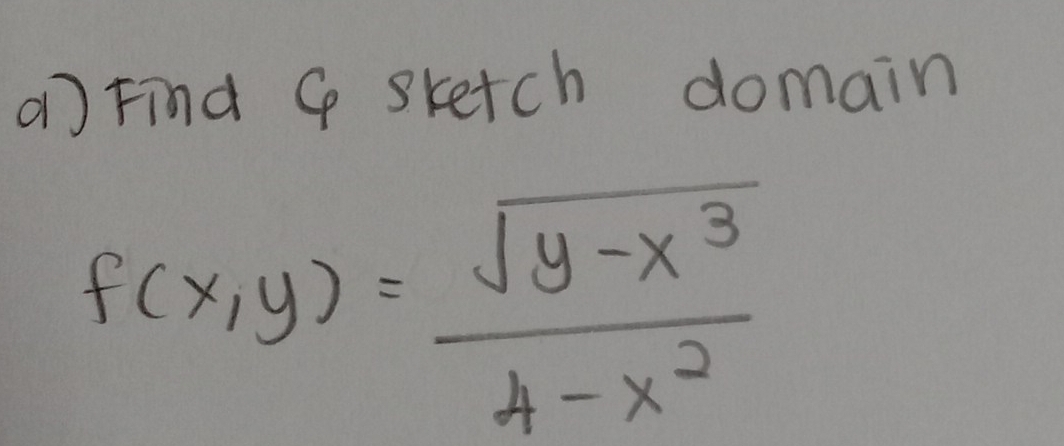 a) Find & sketch domain
f(x,y) = √(y-x³) / (4-x²)